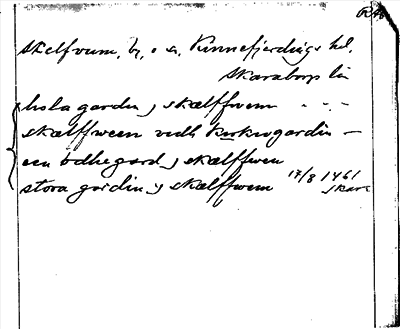 Skelfvum, by, o. sn, Kinnefjerdings hd,
Skaraborgs län
hola gardin j skælffwem - - -
skælffween vedh kirkiogardin —
een ödhe gard j skælffwen
stora gardin j skælffwem 17/8 1461
Skara